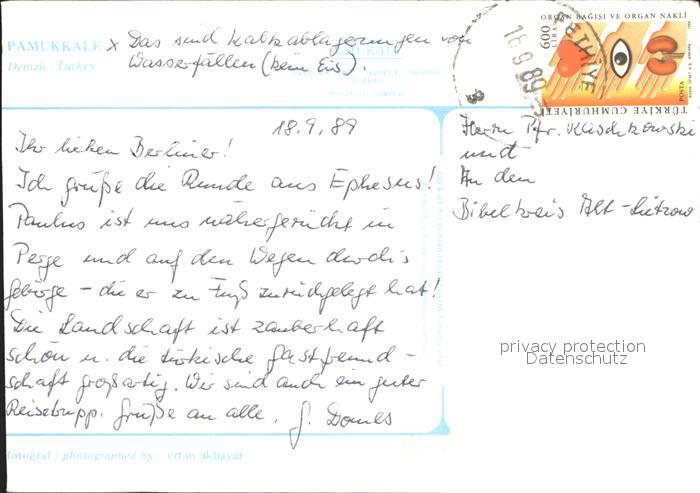 PAMUKKALE x Das sind Kalkablagerungen von
Denizli - Turkey Wasserfällen (kein Eis).
TURKEY
ORGAN BAĞIŞI VE ORGAN NAKLİ
600
LİRA
POSTA
TÜRKİYE CUMHURİYETİ
FETHİYE
18.9.89
18.9.89
Ihr lieben Berliner!
Ich grüße die Runde aus Ephesus!
Paulus ist uns nähergerückt in
Perge und auf den Wegen durchs
Gebirge - die er zu Fuß zurückgelegt hat!
Die Landschaft ist zauberhaft
schön u. die türkische Gastfreund-
schaft großartig. Wir sind auch ein guter
Reisetrupp. Grüße an alle. G.
Herrn Pfr. Kaschkowski
und
An den
Bibelkreis Alt-Lietzow
privacy protection
Datenschutz
fotoğraf / photographed by : ertan akbayar